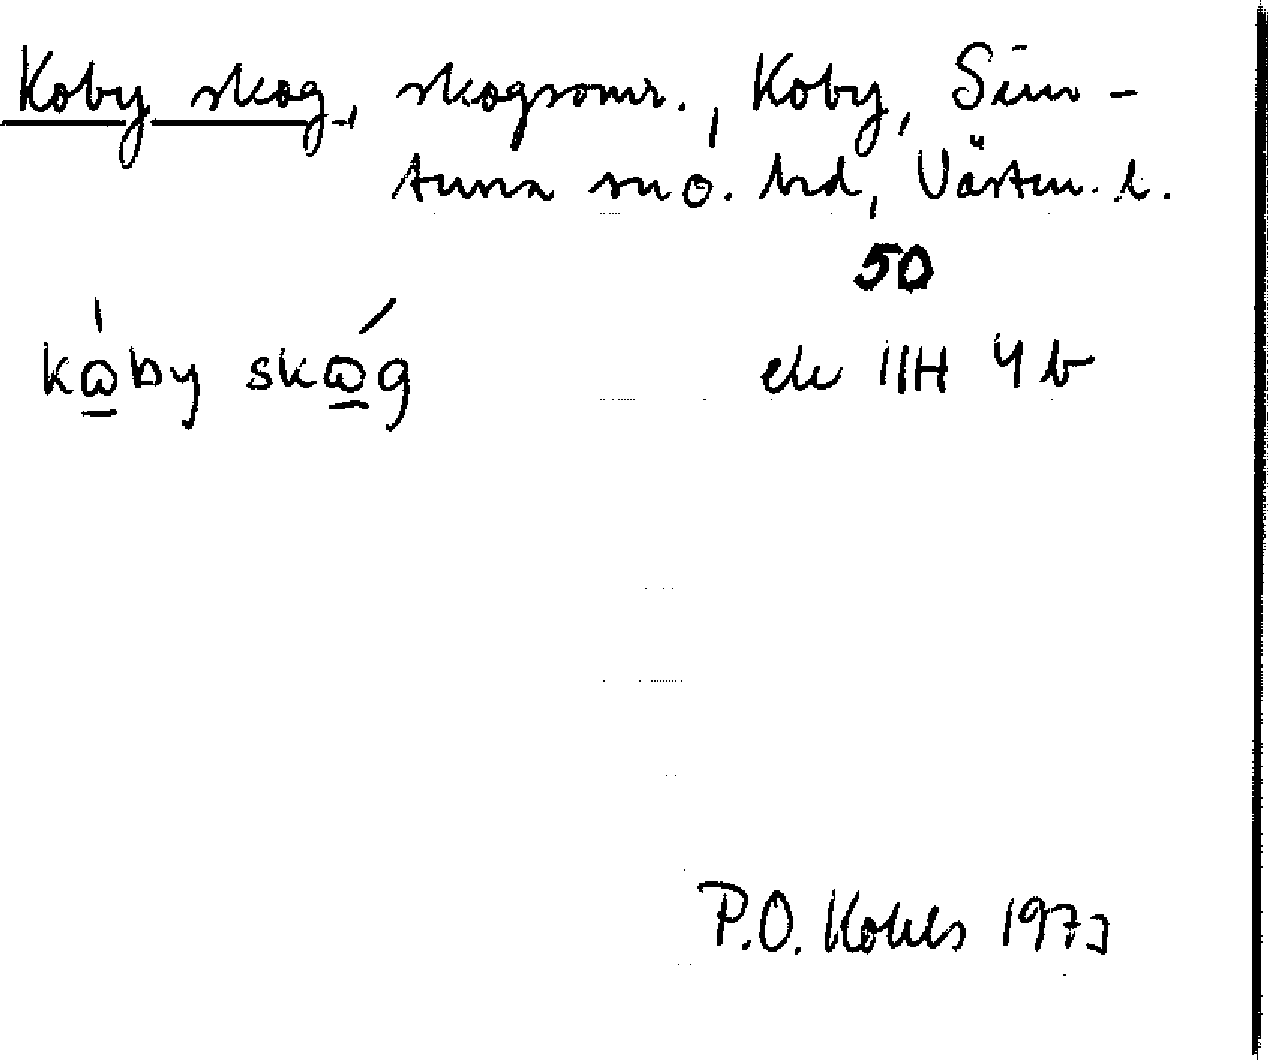 Koby skog, skogsomr., Koby, Sim-
tuna sn o. hd, Västm. l.
50
kωby skωg ek 11H 4b
P.O. Kohls 1973